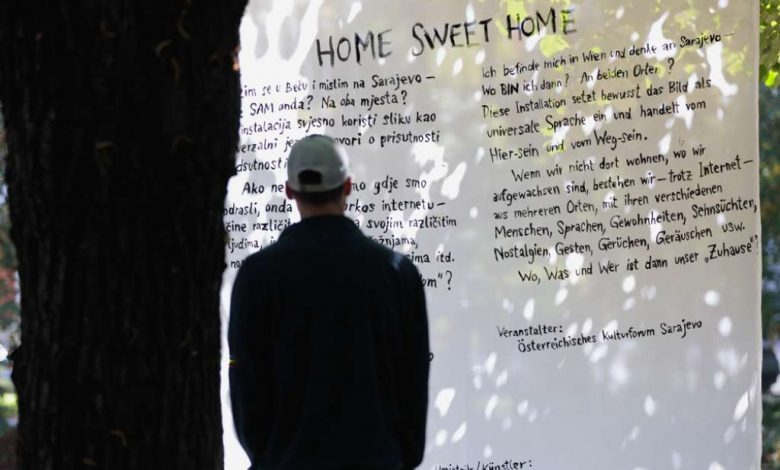 HOME SWEET HOME
zim se u Beču i mislim na Sarajevo –
SAM onda? Na oba mjesta?
instalacija svjesno koristi sliku kao
verzalni je vori o prisutnosti
dsutnosti
Ako ne mo gdje smo
odrasli, onda rkos internetu –
čine različit svojim različitim
ljudima, žnjama,
sima itd.
om"?
Ich befinde mich in Wien und denke an Sarajevo –
Wo BIN ich dann? An beiden Orten?
Diese Installation setzt bewusst das Bild als
universale Sprache ein und handelt vom
Hier-sein und vom Weg-sein.
Wenn wir nicht dort wohnen, wo wir
aufgewachsen sind, bestehen wir – trotz Internet –
aus mehreren Orten, mit ihren verschiedenen
Menschen, Sprachen, Gewohnheiten, Sehnsüchten,
Nostalgien, Gesten, Gerüchen, Geräuschen usw.
Wo, Was und Wer ist dann unser „Zuhause"?
Veranstalter:
Österreichisches Kulturforum Sarajevo
Umjetnik/Künstler: